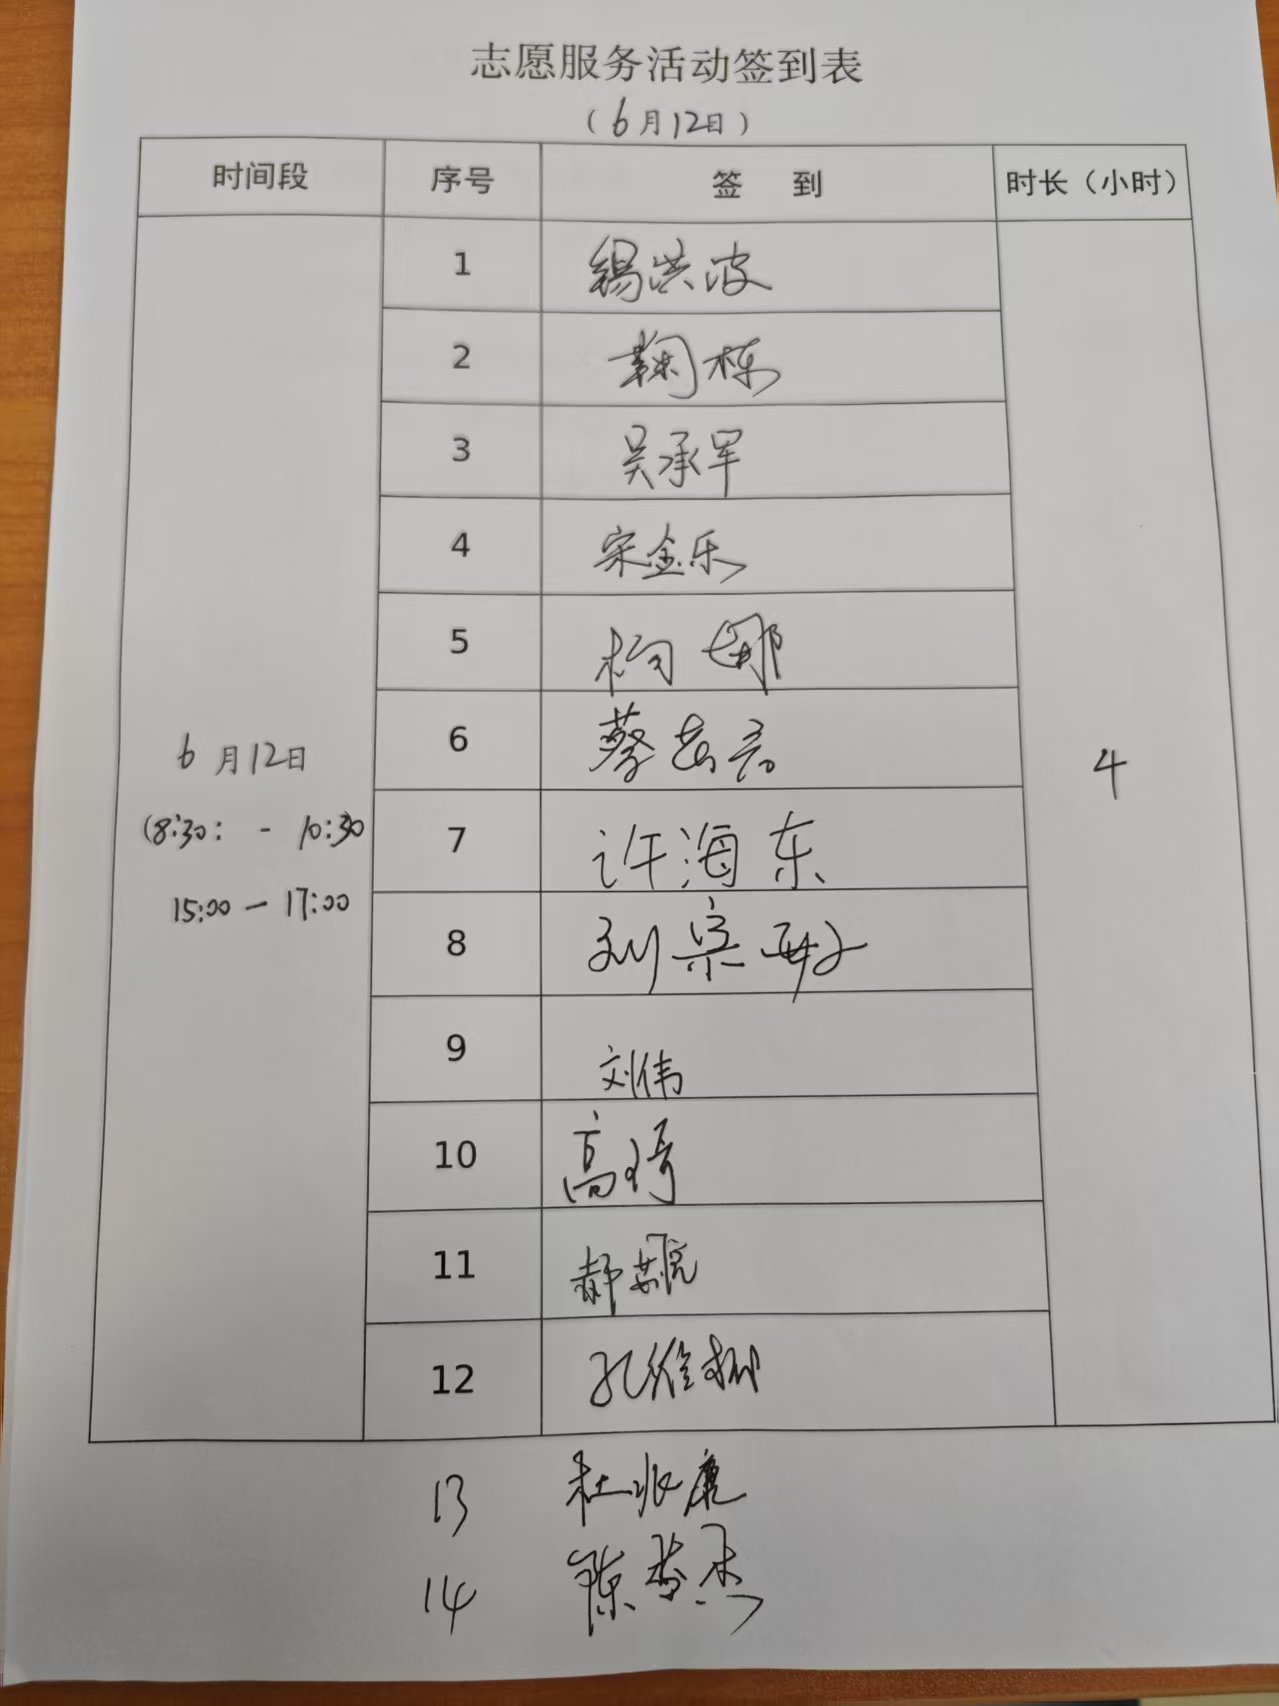 志愿服务活动签到表
（6月12日）
时间段 序号 签 到 时长（小时）
1
2 鞠栋
3 吴承军
4 宋金乐
5 柯娜
6 蔡
7 许海东
8 刘
9 刘伟
10 高琦
11 郝
12 孔维
6月12日
(8:30: - 10:30
15:00 - 17:00
4
13 杜兆康
14 陈 杰